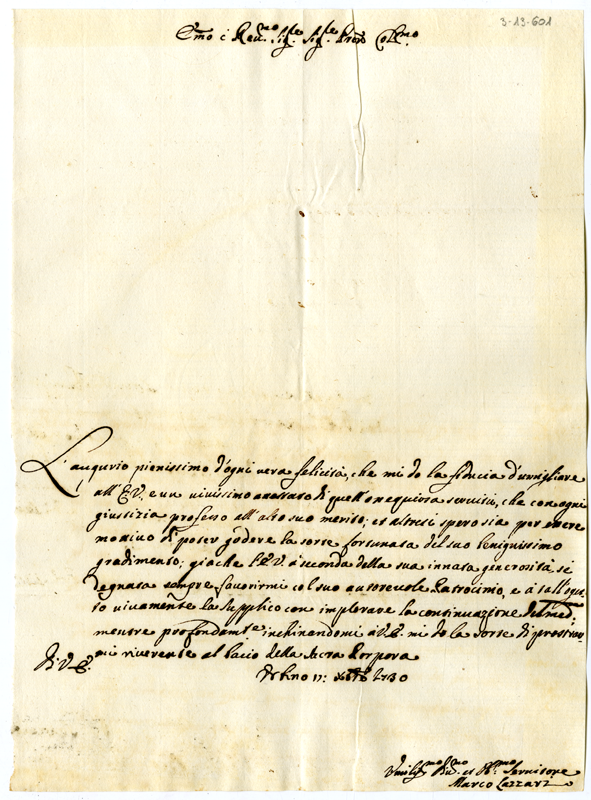 3-13-601
Em̃o e Rev.mo Sig.re Sig.re Pr̃one Col.mo
L'augurio pienissimo d'ogni vera felicità, che mi do la fiducia d'umigliare
all'E.V. e un vivissimo attestato di quell'ossequiosa servitù, che con ogni
giustizia professo all'alto suo merito, et altresi spero sia per essere
motivo di poter godere la sorte fortunata del suo benignissimo
gradimento, gia che l'E.V. à seconda della sua innata generosità, si
degnata sempre favorirmi col suo autorevole Patrocinio, e à tall'ogget-
to vivamente la supplico con implorare la continuazione del med.
mentre profondam.te inchinandomi à V.E. mi do la sorte di prostrar-
mi riverente al bacio della Sacra Porpora
Di V.E.
Urbino 17: Xbre 1730
Umiliss.mo Div.mo et Obl.mo Servitore
Marco Lazzari